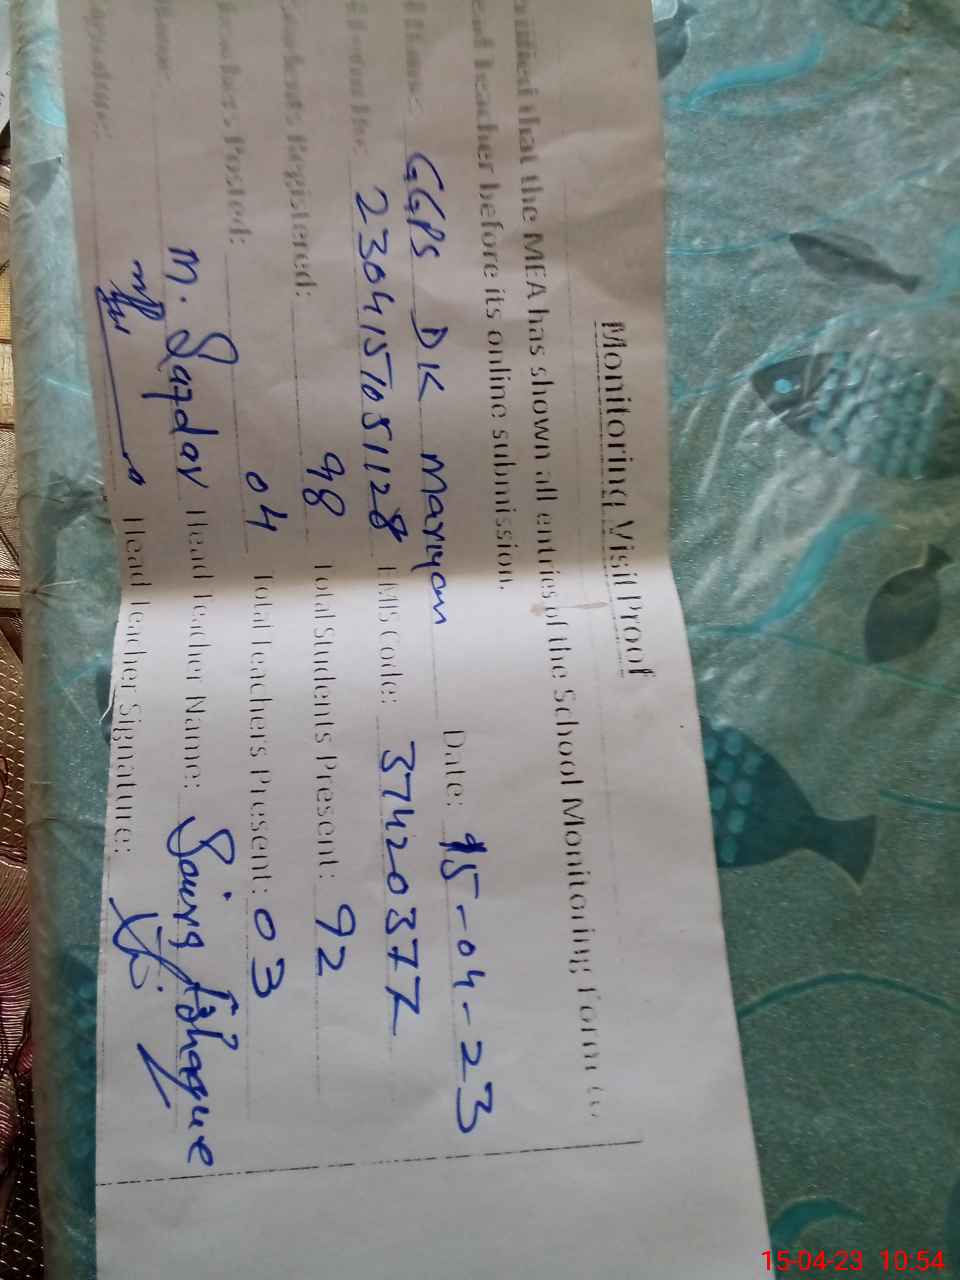 Monitoring Visit Proof
that the MEA has shown all entries of the School Monitoring Form to
Teacher before its online submission.
GGPS DK Maryam Date: 15-04-23
2304157651128 EMIS Code: 37420377
Students Registered: 98 Total Students Present: 92
Posted: 04 Total Teachers Present: 03
M. Head Teacher Name: Ishaque
Head Teacher Signature:
15-04-23 10:54